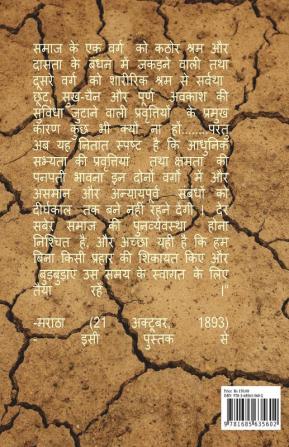 समाज के एक वर्ग को कठोर श्रम और
दासता के बंधन में जकड़ने वाली तथा
दूसरे वर्ग को शारीरिक श्रम से सर्वथा
छूट, सुख-चैन और पूर्ण अवकाश की
सुविधा जुटाने वाली प्रवृत्तियों के प्रमुख
कारण कुछ भी क्यों ना हों........परंतु
अब यह नितांत स्पष्ट है कि आधुनिक
सभ्यता की प्रवृत्तियां तथा क्षमता की
पनपती भावना इन दोनों वर्गों में और
असमान और अन्यायपूर्ण संबंधों को
दीर्घकाल तक बने नहीं रहने देगी । देर
सबेर समाज की पुनर्व्यवस्था होना
निश्चित है, और अच्छा यही है कि हम
बिना किसी प्रहार की शिकायत किए और
बुडबुडाएं उस समय के स्वागत के लिए
तैया रहें ।"
-मराठा (21 अक्टूबर, 1893)
- इसी पुस्तक से
9 781685 635602